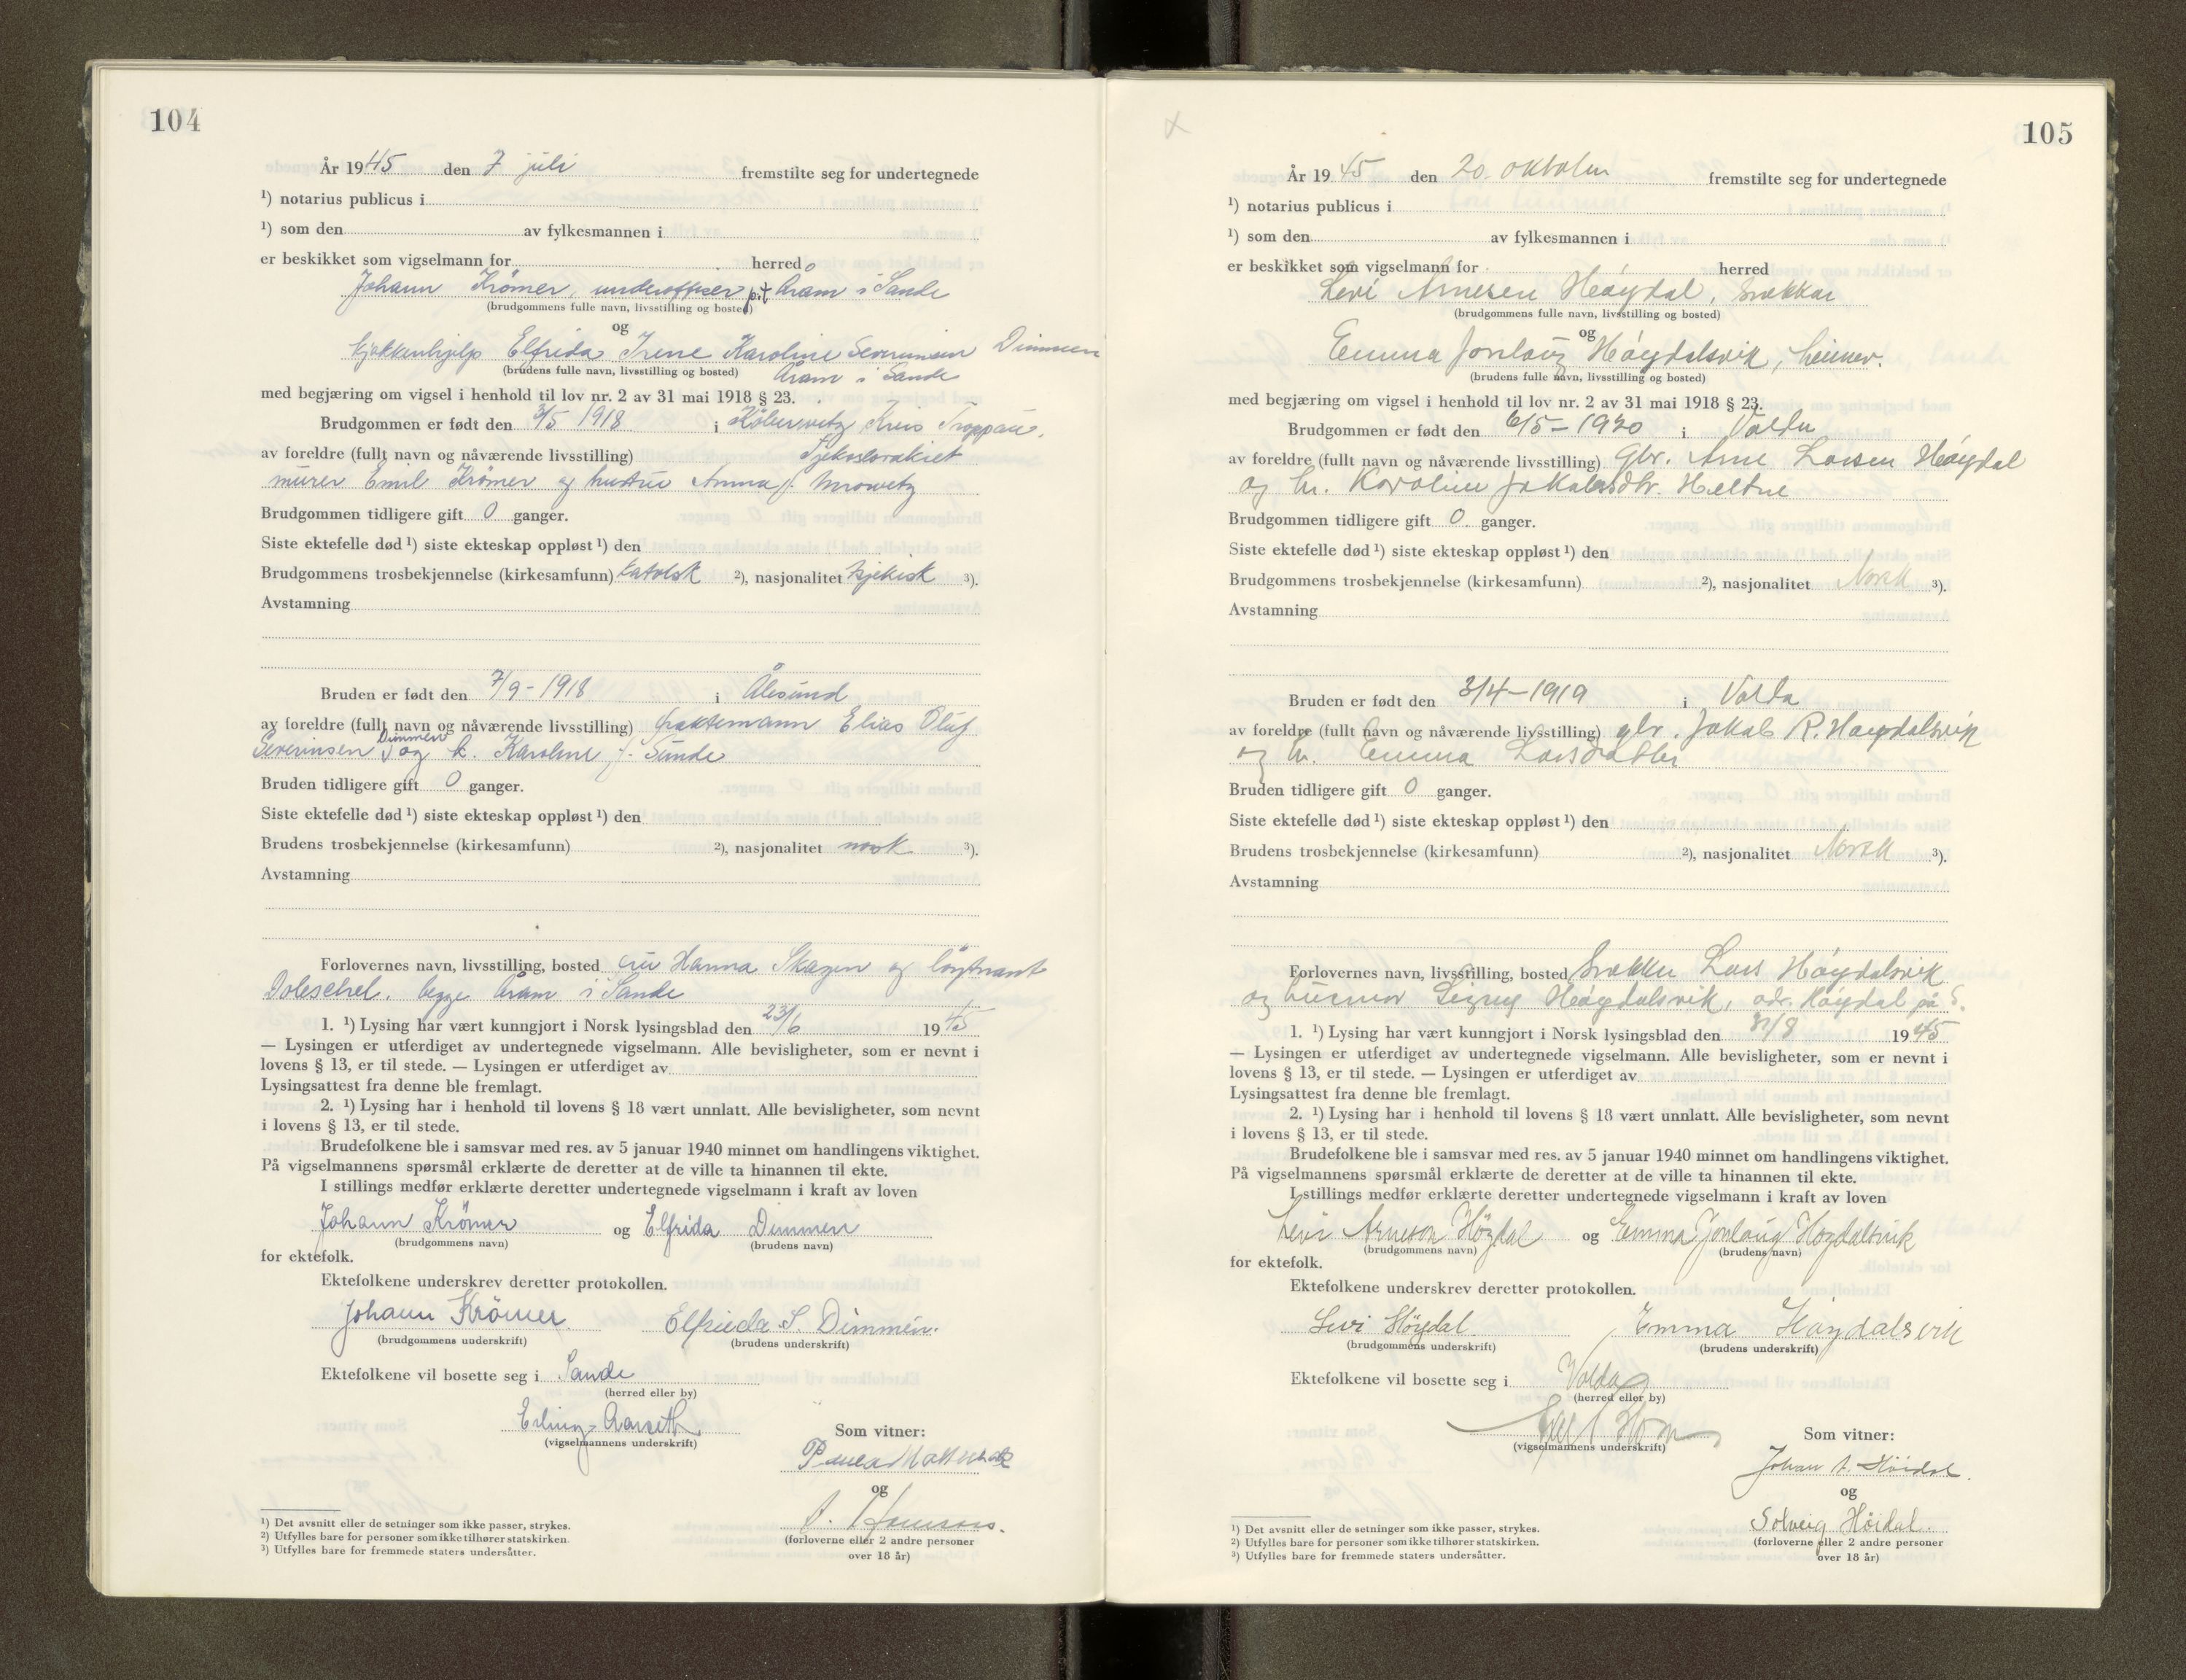 104
År 1945 den 7 juli fremstilte seg for undertegnede
¹) notarius publicus i
¹) som den av fylkesmannen i
er beskikket som vigselmann for herred
Johann Krömer, underoffiser p.t. Åram i Sande
(brudgommens fulle navn, livsstilling og bosted)
og
kjøkkenhjelp Elfrida Irene Karoline Severinsen Dimmen
(brudens fulle navn, livsstilling og bosted) Åram i Sande
med begjæring om vigsel i henhold til lov nr. 2 av 31 mai 1918 § 23.
Brudgommen er født den 3/5 1918 i Kreis Troppau,
av foreldre (fullt navn og nåværende livsstilling) Tjekoslovakiet
murer Emil Krömer og hustru Anna f.
Brudgommen tidligere gift 0 ganger.
Siste ektefelle død ¹) siste ekteskap oppløst ¹) den
Brudgommens trosbekjennelse (kirkesamfunn) katolsk ²), nasjonalitet tsjekisk ³).
Avstamning
Bruden er født den 7/9 - 1918 i Ålesund
av foreldre (fullt navn og nåværende livsstilling) fraktemann Elias Oluf
Severinsen Dimmen og h. Karoline f. Sunde
Bruden tidligere gift 0 ganger.
Siste ektefelle død ¹) siste ekteskap oppløst ¹) den
Brudens trosbekjennelse (kirkesamfunn) ²), nasjonalitet norsk ³).
Avstamning
Forlovernes navn, livsstilling, bosted fru Hanna Skagen og löytnant
Doleschel. begge Åram i Sande
1. ¹) Lysing har vært kunngjort i Norsk lysingsblad den 23/6 1945
— Lysingen er utferdiget av undertegnede vigselmann. Alle bevisligheter, som er nevnt i
lovens § 13, er til stede. — Lysingen er utferdiget av
Lysingsattest fra denne ble fremlagt.
2. ¹) Lysing har i henhold til lovens § 18 vært unnlatt. Alle bevisligheter, som nevnt
i lovens § 13, er til stede.
Brudefolkene ble i samsvar med res. av 5 januar 1940 minnet om handlingens viktighet.
På vigselmannens spørsmål erklærte de deretter at de ville ta hinannen til ekte.
I stillings medfør erklærte deretter undertegnede vigselmann i kraft av loven
Johann Krömer og Elfrida Dimmen
(brudgommens navn) (brudens navn)
for ektefolk.
Ektefolkene underskrev deretter protokollen.
Johann Krömer Elfrieda S. Dimmen.
(brudgommens underskrift) (brudens underskrift)
Ektefolkene vil bosette seg i Sande
(herred eller by)
Erling Aarseth
(vigselmannens underskrift)
Som vitner:
og
(forloverne eller 2 andre personer
over 18 år)
¹) Det avsnitt eller de setninger som ikke passer, strykes.
²) Utfylles bare for personer som ikke tilhører statskirken.
³) Utfylles bare for fremmede staters undersåtter.
105
År 1945 den 20. oktober fremstilte seg for undertegnede
¹) notarius publicus i
¹) som den av fylkesmannen i
er beskikket som vigselmann for herred
Levi Arnesen Høydal, snekkar
(brudgommens fulle navn, livsstilling og bosted)
og
Emma Jonlaug Høydalsvik, heimev.
(brudens fulle navn, livsstilling og bosted)
med begjæring om vigsel i henhold til lov nr. 2 av 31 mai 1918 § 23.
Brudgommen er født den 6/5 - 1920 i Volda
av foreldre (fullt navn og nåværende livsstilling) Gbr. Arne Larsen Høydal
og h. Karoline Jakobsdtr. Heltne
Brudgommen tidligere gift 0 ganger.
Siste ektefelle død ¹) siste ekteskap oppløst ¹) den
Brudgommens trosbekjennelse (kirkesamfunn) ²), nasjonalitet Norsk ³).
Avstamning
Bruden er født den 3/4 - 1919 i Volda
av foreldre (fullt navn og nåværende livsstilling) gbr. Jakob R. Høydalsvik
og h. Emma Larsdatter
Bruden tidligere gift 0 ganger.
Siste ektefelle død ¹) siste ekteskap oppløst ¹) den
Brudens trosbekjennelse (kirkesamfunn) ²), nasjonalitet Norsk ³).
Avstamning
Forlovernes navn, livsstilling, bosted Snekker Lars Høydalsvik
og Høydalsvik, adr. Høydal på S.
1. ¹) Lysing har vært kunngjort i Norsk lysingsblad den /8 1945
— Lysingen er utferdiget av undertegnede vigselmann. Alle bevisligheter, som er nevnt i
lovens § 13, er til stede. — Lysingen er utferdiget av
Lysingsattest fra denne ble fremlagt.
2. ¹) Lysing har i henhold til lovens § 18 vært unnlatt. Alle bevisligheter, som nevnt
i lovens § 13, er til stede.
Brudefolkene ble i samsvar med res. av 5 januar 1940 minnet om handlingens viktighet.
På vigselmannens spørsmål erklærte de deretter at de ville ta hinannen til ekte.
I stillings medfør erklærte deretter undertegnede vigselmann i kraft av loven
Levi Arneson Höydal og Emma Jonlaug Høydalsvik
(brudgommens navn) (brudens navn)
for ektefolk.
Ektefolkene underskrev deretter protokollen.
Levi Höydal Emma Høydalsvik
(brudgommens underskrift) (brudens underskrift)
Ektefolkene vil bosette seg i Volda
(herred eller by)
(vigselmannens underskrift)
Som vitner:
Johan A. Höidal.
og
Solveig Höidal.
(forloverne eller 2 andre personer
over 18 år)
¹) Det avsnitt eller de setninger som ikke passer, strykes.
²) Utfylles bare for personer som ikke tilhører statskirken.
³) Utfylles bare for fremmede staters undersåtter.